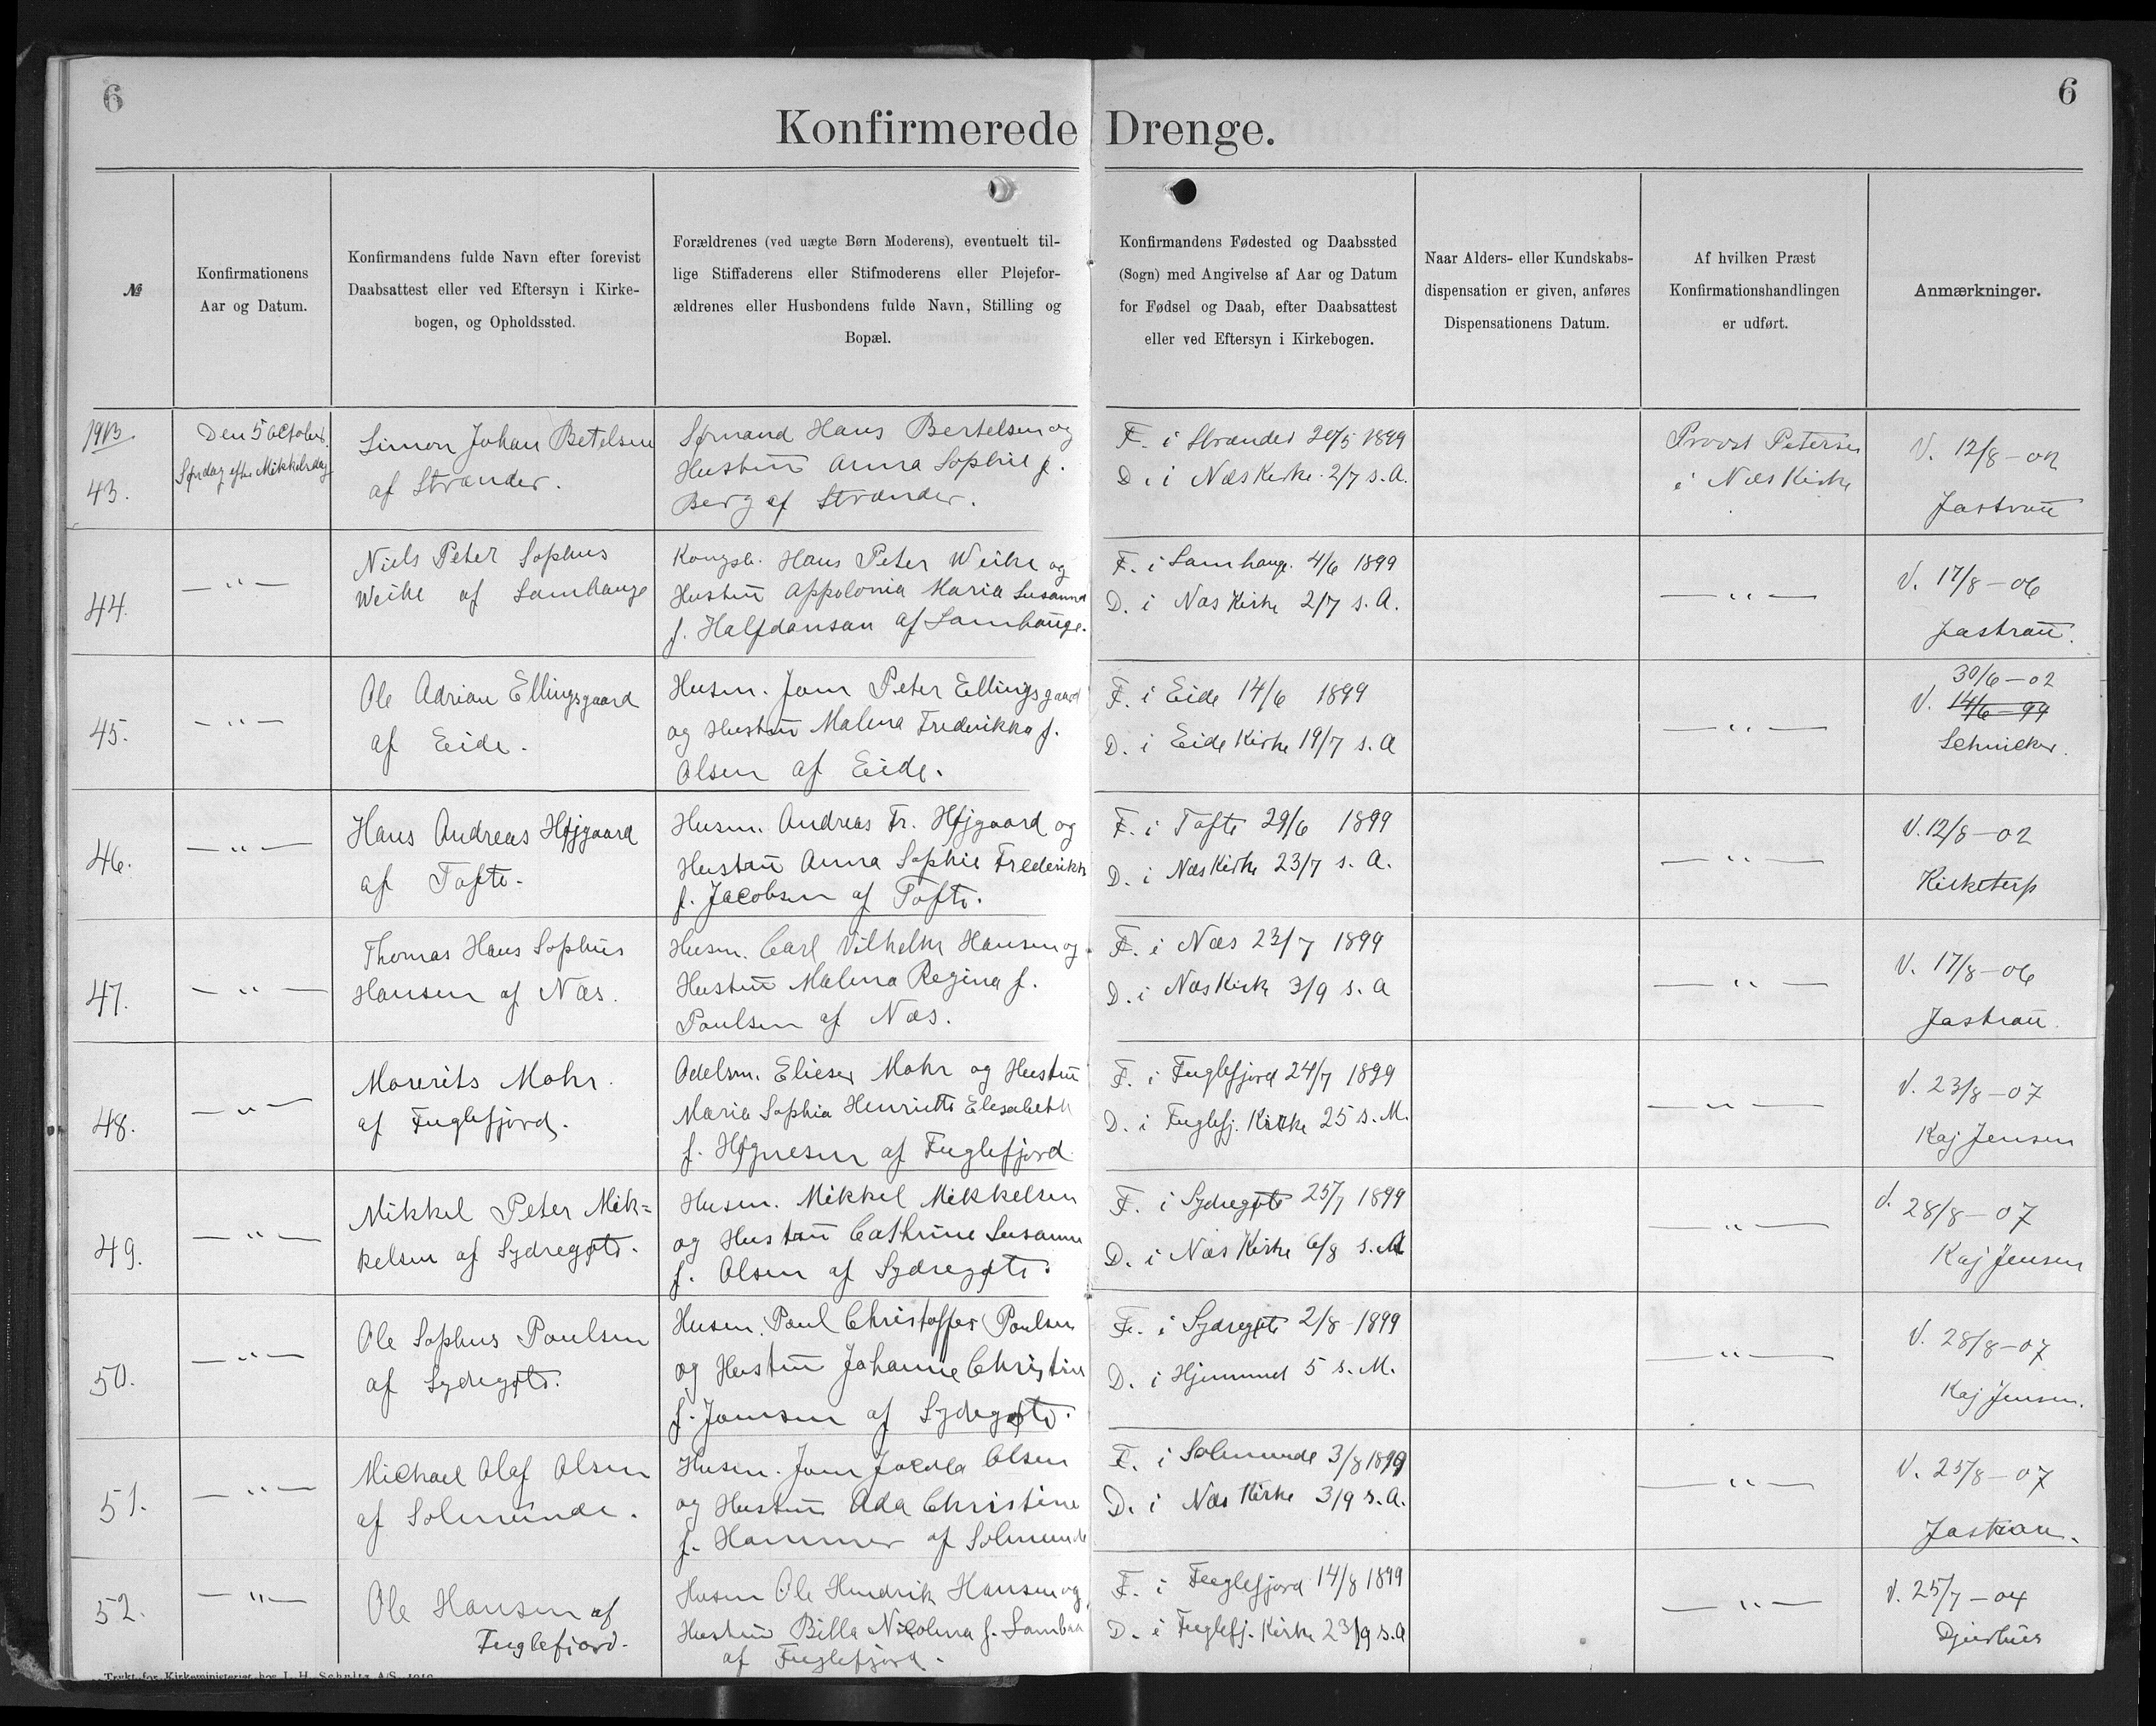 6
6
Konfirmerede Drenge.
№
Konfirmationens
Aar og Datum.
Konfirmandens fulde Navn efter forevist
Daabsattest eller ved Eftersyn i Kirke-
bogen, og Opholdssted.
Forældrenes (ved uægte Børn Moderens), eventuelt til-
lige Stiffaderens eller Stifmoderens eller Plejefor-
ældrenes eller Husbondens fulde Navn, Stilling og
Bopæl.
Konfirmandens Fødested og Daabssted
(Sogn) med Angivelse af Aar og Datum
for Fødsel og Daab, efter Daabsattest
eller ved Eftersyn i Kirkebogen.
Naar Alders- eller Kundskabs-
dispensation er given, anføres
Dispensationens Datum.
Af hvilken Præst
Konfirmationshandlingen
er udført.
Anmærkninger.
1913.
43.
Den 5 October.
Søndag efter Mikkelsdag
Simon Johan Betelsen
af Strænder.
Sømand Hans Bertelsen og
Hustru Anna Sophie f.
Berg af Strænder.
F. i Strænder 20/5 1899
D. i Næs Kirke 2/7 s.A.
Provst Petersen
i Næs Kirke
V. 12/8-02
Jastrau
44.
— " —
Niels Peter Sophus
Weihe af Lamhauge
Kongsb. Hans Peter Weihe og
Hustru Appolonia Maria Susanna
f. Halfdansen af Lamhauge.
F. i Lamhauge. 4/6 1899
D. i Næs Kirke 2/7 s.A.
— " —
V. 17/8-06
Jastrau.
45.
— " —
Ole Adrian Ellingsgaard
af Eide.
Husm. Joen Peter Ellingsgaard
og Hustru Malena Frederikka f.
Olsen af Eide.
F. i Eide 14/6 1899
D. i Eide Kirke 19/7 s.A
— " —
30/6-02
V. 14/6-99
Schnicker.
46.
— " —
Hans Andreas Højgaard
af Tofte.
Husm. Andreas Fr. Højgaard og
Hustru Anna Sophie Frederikke
f. Jacobsen af Tofte.
F. i Tofte 29/6 1899
D. i Næs Kirke 23/7 s.A.
— " —
V. 12/8-02
Kirketerp
47.
— " —
Thomas Hans Sophus
Hansen af Næs.
Husm. Carl Vilhelm Hansen og
Hustru Malena Regina f.
Poulsen af Næs.
F. i Næs 23/7 1899
D. i Næs Kirke 3/9 s.A
— " —
V. 17/8-06
Jastrau.
48.
— " —
Mourits Mohr.
af Fuglefjord.
Odelsm. Elieser Mohr og Hustru
Maria Sophia Henriette Elesabeth
f. Høgnesen af Fuglefjord
F. i Fuglefjord 24/7 1899
D. i Fuglefj. Kirke 25 s.M.
— " —
V. 23/8-07
Kaj Jensen
49.
— " —
Mikkel Peter Mik=
kelsen af Sydregøte.
Husm. Mikkel Mikkelsen
og Hustru Cathrine Susanne
f. Olsen af Sydregøte.
F. i Sydregøte 25/7 1899
D. i Næs Kirke 6/8 s.A
— " —
V. 28/8-07
Kaj Jensen
50.
— " —
Ole Sophus Poulsen
af Sydregøte.
Husm. Poul Christoffer Poulsen
og Hustru Johanne Christine
f. Joensen af Sydregøte.
F. i Sydregøte 2/8-1899
D. i Hjemmet 5 s.M.
— " —
V. 28/8-07
Kaj Jensen.
51.
— " —
Michael Olaf Olsen
af Solmunde.
Husm. Joen Jacob Olsen
og Hustru Ada Christine
f. Hammer af Solmunde
F. i Solmunde 3/8 1899
D. i Næs Kirke 3/9 s.A.
— " —
V. 25/8-07
Jastrau.
52.
— " —
Ole Hansen af
Fuglefjord.
Husm Ole Hendrik Hansen og
Hustru Billa Nicolena f. Lambaa
af Fuglefjord.
F. i Fuglefjord 14/8 1899
D. i Fuglefj. Kirke 23/9 s.A
— " —
V. 25/7-04
Djurhuus
Trykt for Kirkeministeriet hos J. H. Schultz A/S.